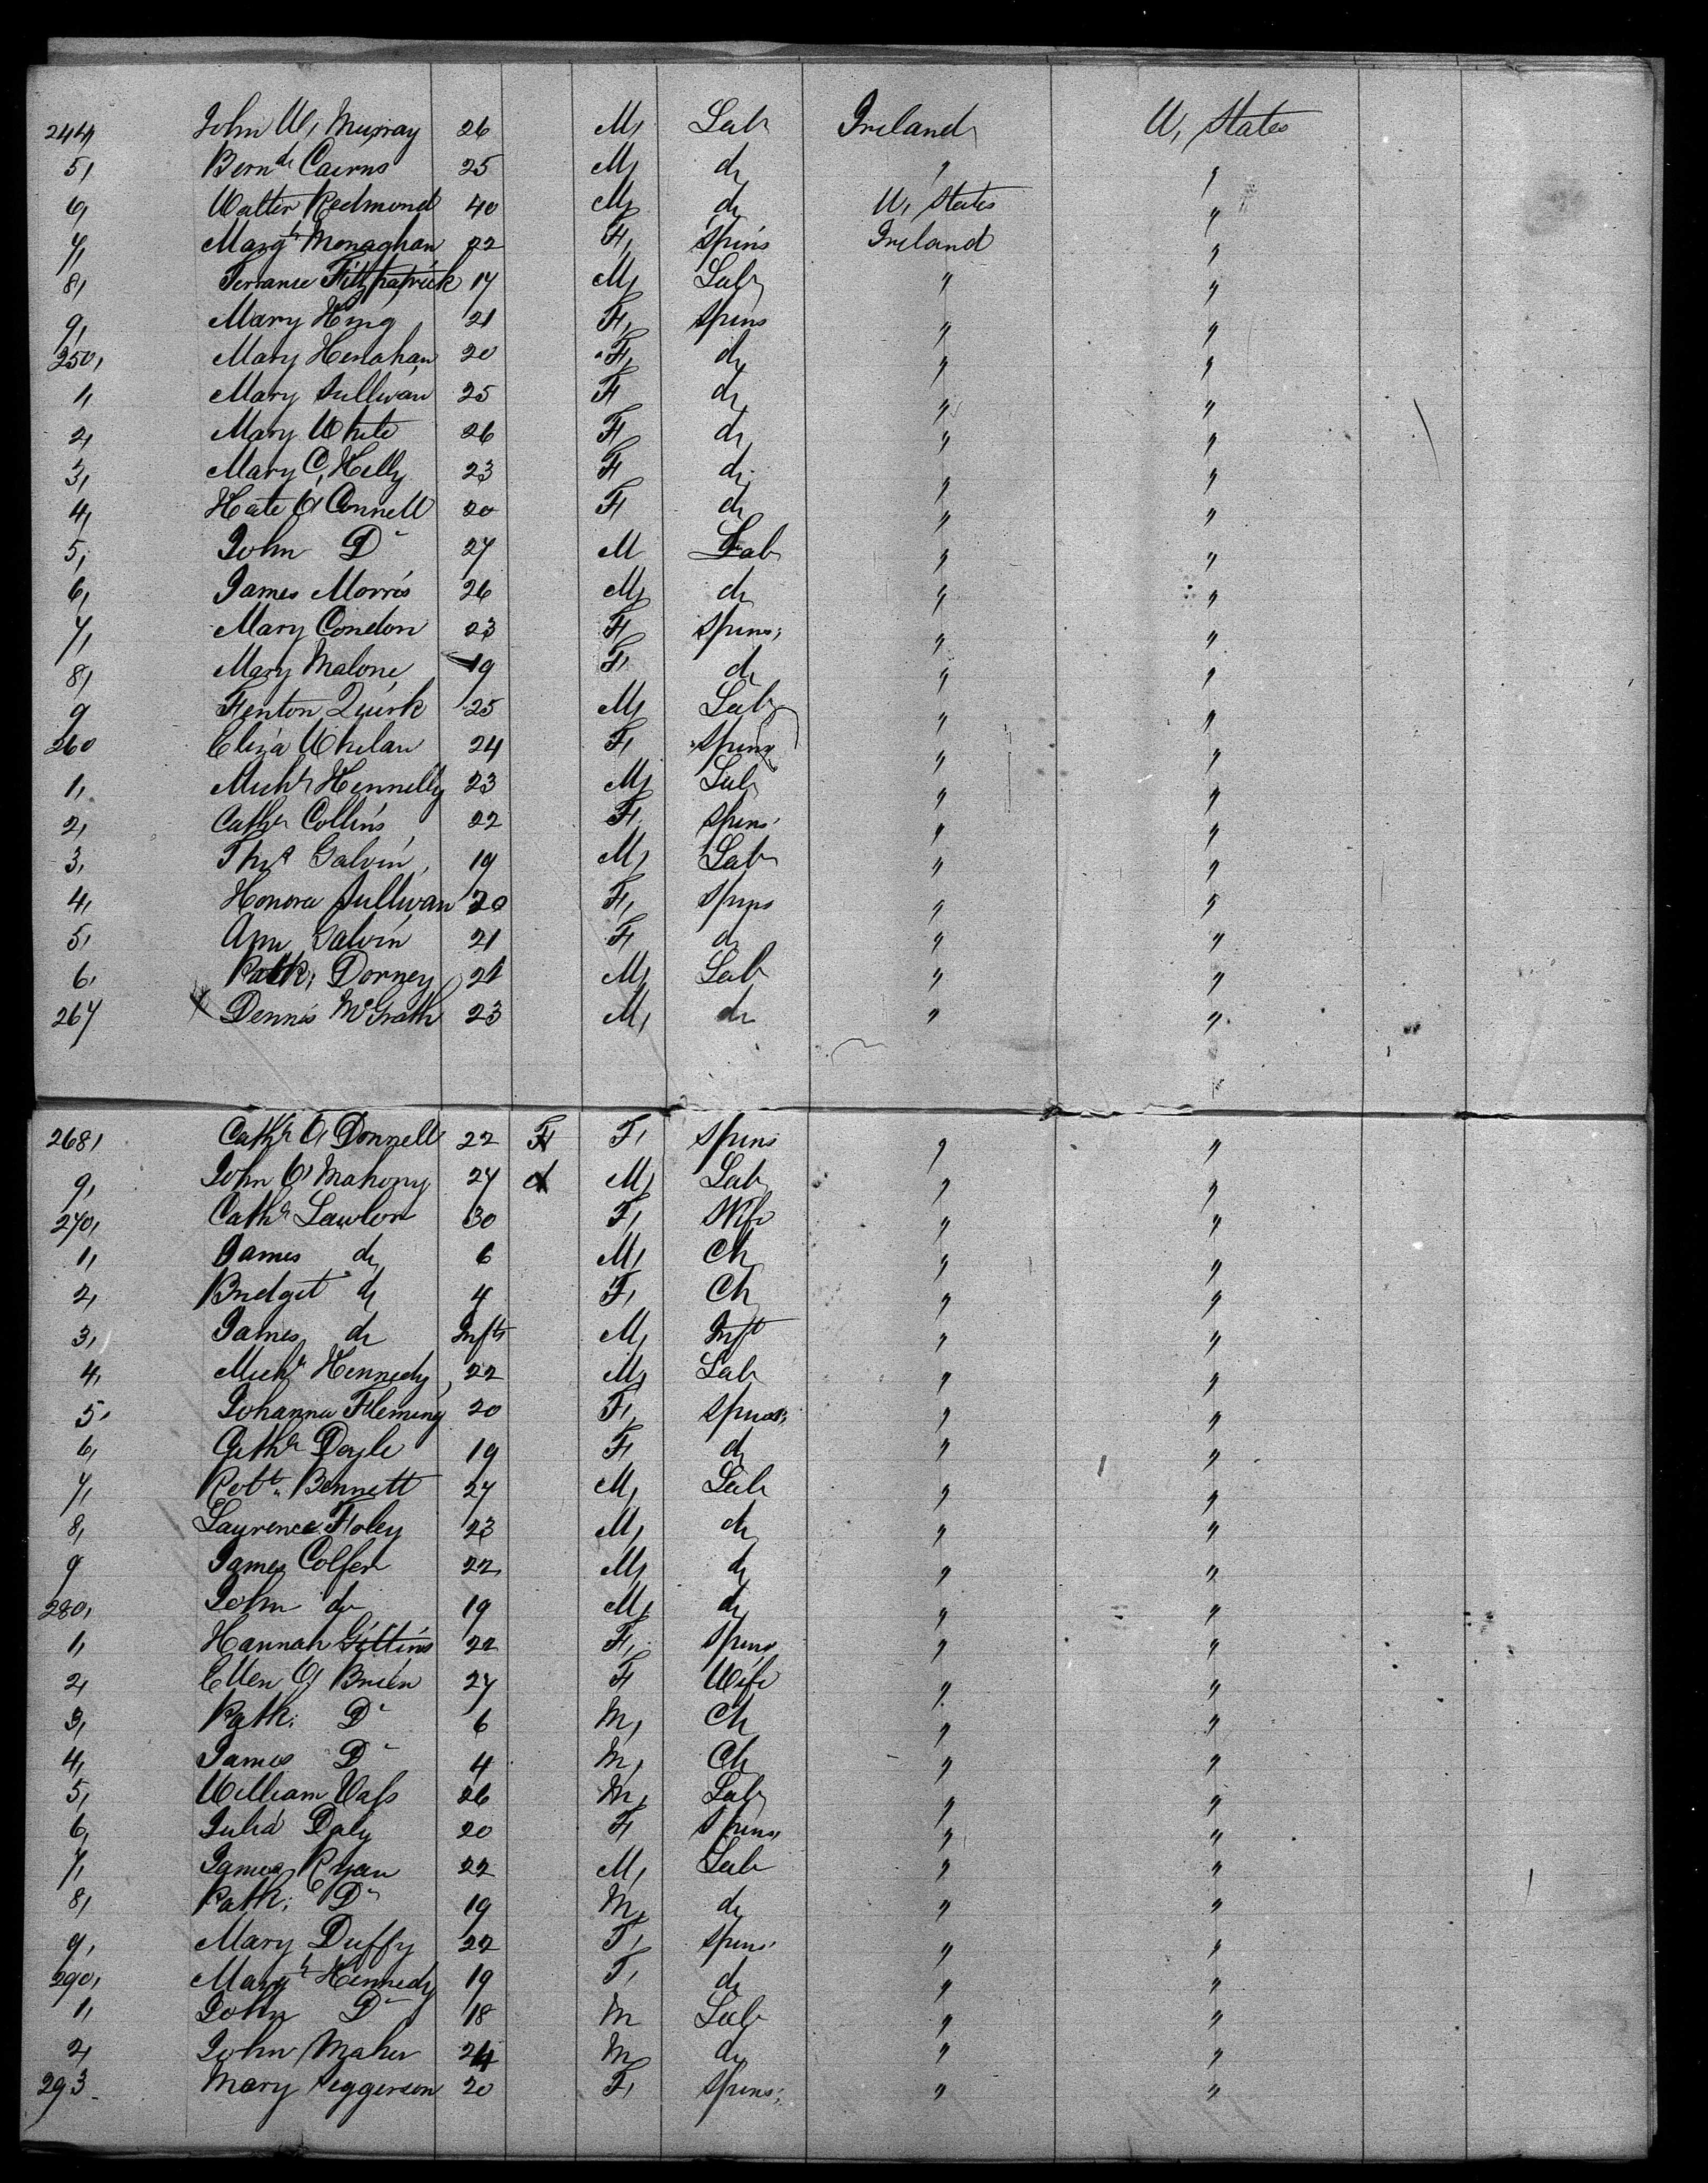 244, John W, Murray 26 M, Lab Ireland U, States
5, Bernd Cairns 25 M, do " "
6, Walter Redmond 40 M, do U, States "
7, Margt Monaghan 22 F, Spins Ireland "
8, Terranse Fittzpatrick 17 M, Lab " "
9, Mary King 21 F, Spins " "
250, Mary Kenahan 20 F, do " "
1, Mary Sullivan 25 F do " "
2, Mary White 26 F, do " "
3, Mary C, Kelly 23 F do " "
4, Kate O'Connell 20 F, do " "
5, John Do 27 M Lab " "
6, James Morris 26 M, do " "
7, Mary Condon 23 F, Spins, " "
8, Mary Malone 19 F, do " "
9 Fenton Quirk 25 M, Lab " "
260 Eliza Whelan 24 F, Spins " "
1, Michl Kennelly 23 M, Lab " "
2, Cathe Collins 22 F, Spins " "
3, Thos Galvin 19 M, Lab " "
4, Honora Sullivan 20 F, Spins " "
5, Ann Galvin 21 F, do " "
6, Patk, Dorney 21 M, Lab " "
267 X Dennis McGrath 23 M, do " "
268, Cathe O'Donnell 22 F F, Spins " "
9, John O'Mahony 27 M, Lab " "
270, Cathe Lawlor 30 F, Wife " "
1, James do 6 M, Ch " "
2, Bridget do 4 F, Ch " "
3, James do Inft M, Inft " "
4, Michl Kennedy, 22 M, Lab " "
5, Johanna Fleming 20 F, Spins, " "
6, Cathe Doyle 19 F, do " "
7, Robt Bennett 27 M, Lab " "
8, Laurence Foley 23 M, do " "
9 James Colfer 22 M, do " "
280, John do 19 M, do " "
1, Hannah Gittins 22 F, Spins " "
2, Ellen O'Brien 27 F Wife " "
3, Patk. Do 6 M, Ch " "
4, James Do 4 M, Ch " "
5, William Wass 26 M, Lab " "
6, Julia Daly 20 F, Spins, " "
7, James Ryan 22 M, Lab " "
8, Patk. Do 19 M, do " "
9, Mary Duffy 22 F, Spins " "
290, Margt Kennedy 19 F, do " "
1, John Do 18 M Lab " "
2, John Maher 24 M, do " "
293 Mary Seggerson 20 F, Spins, " "